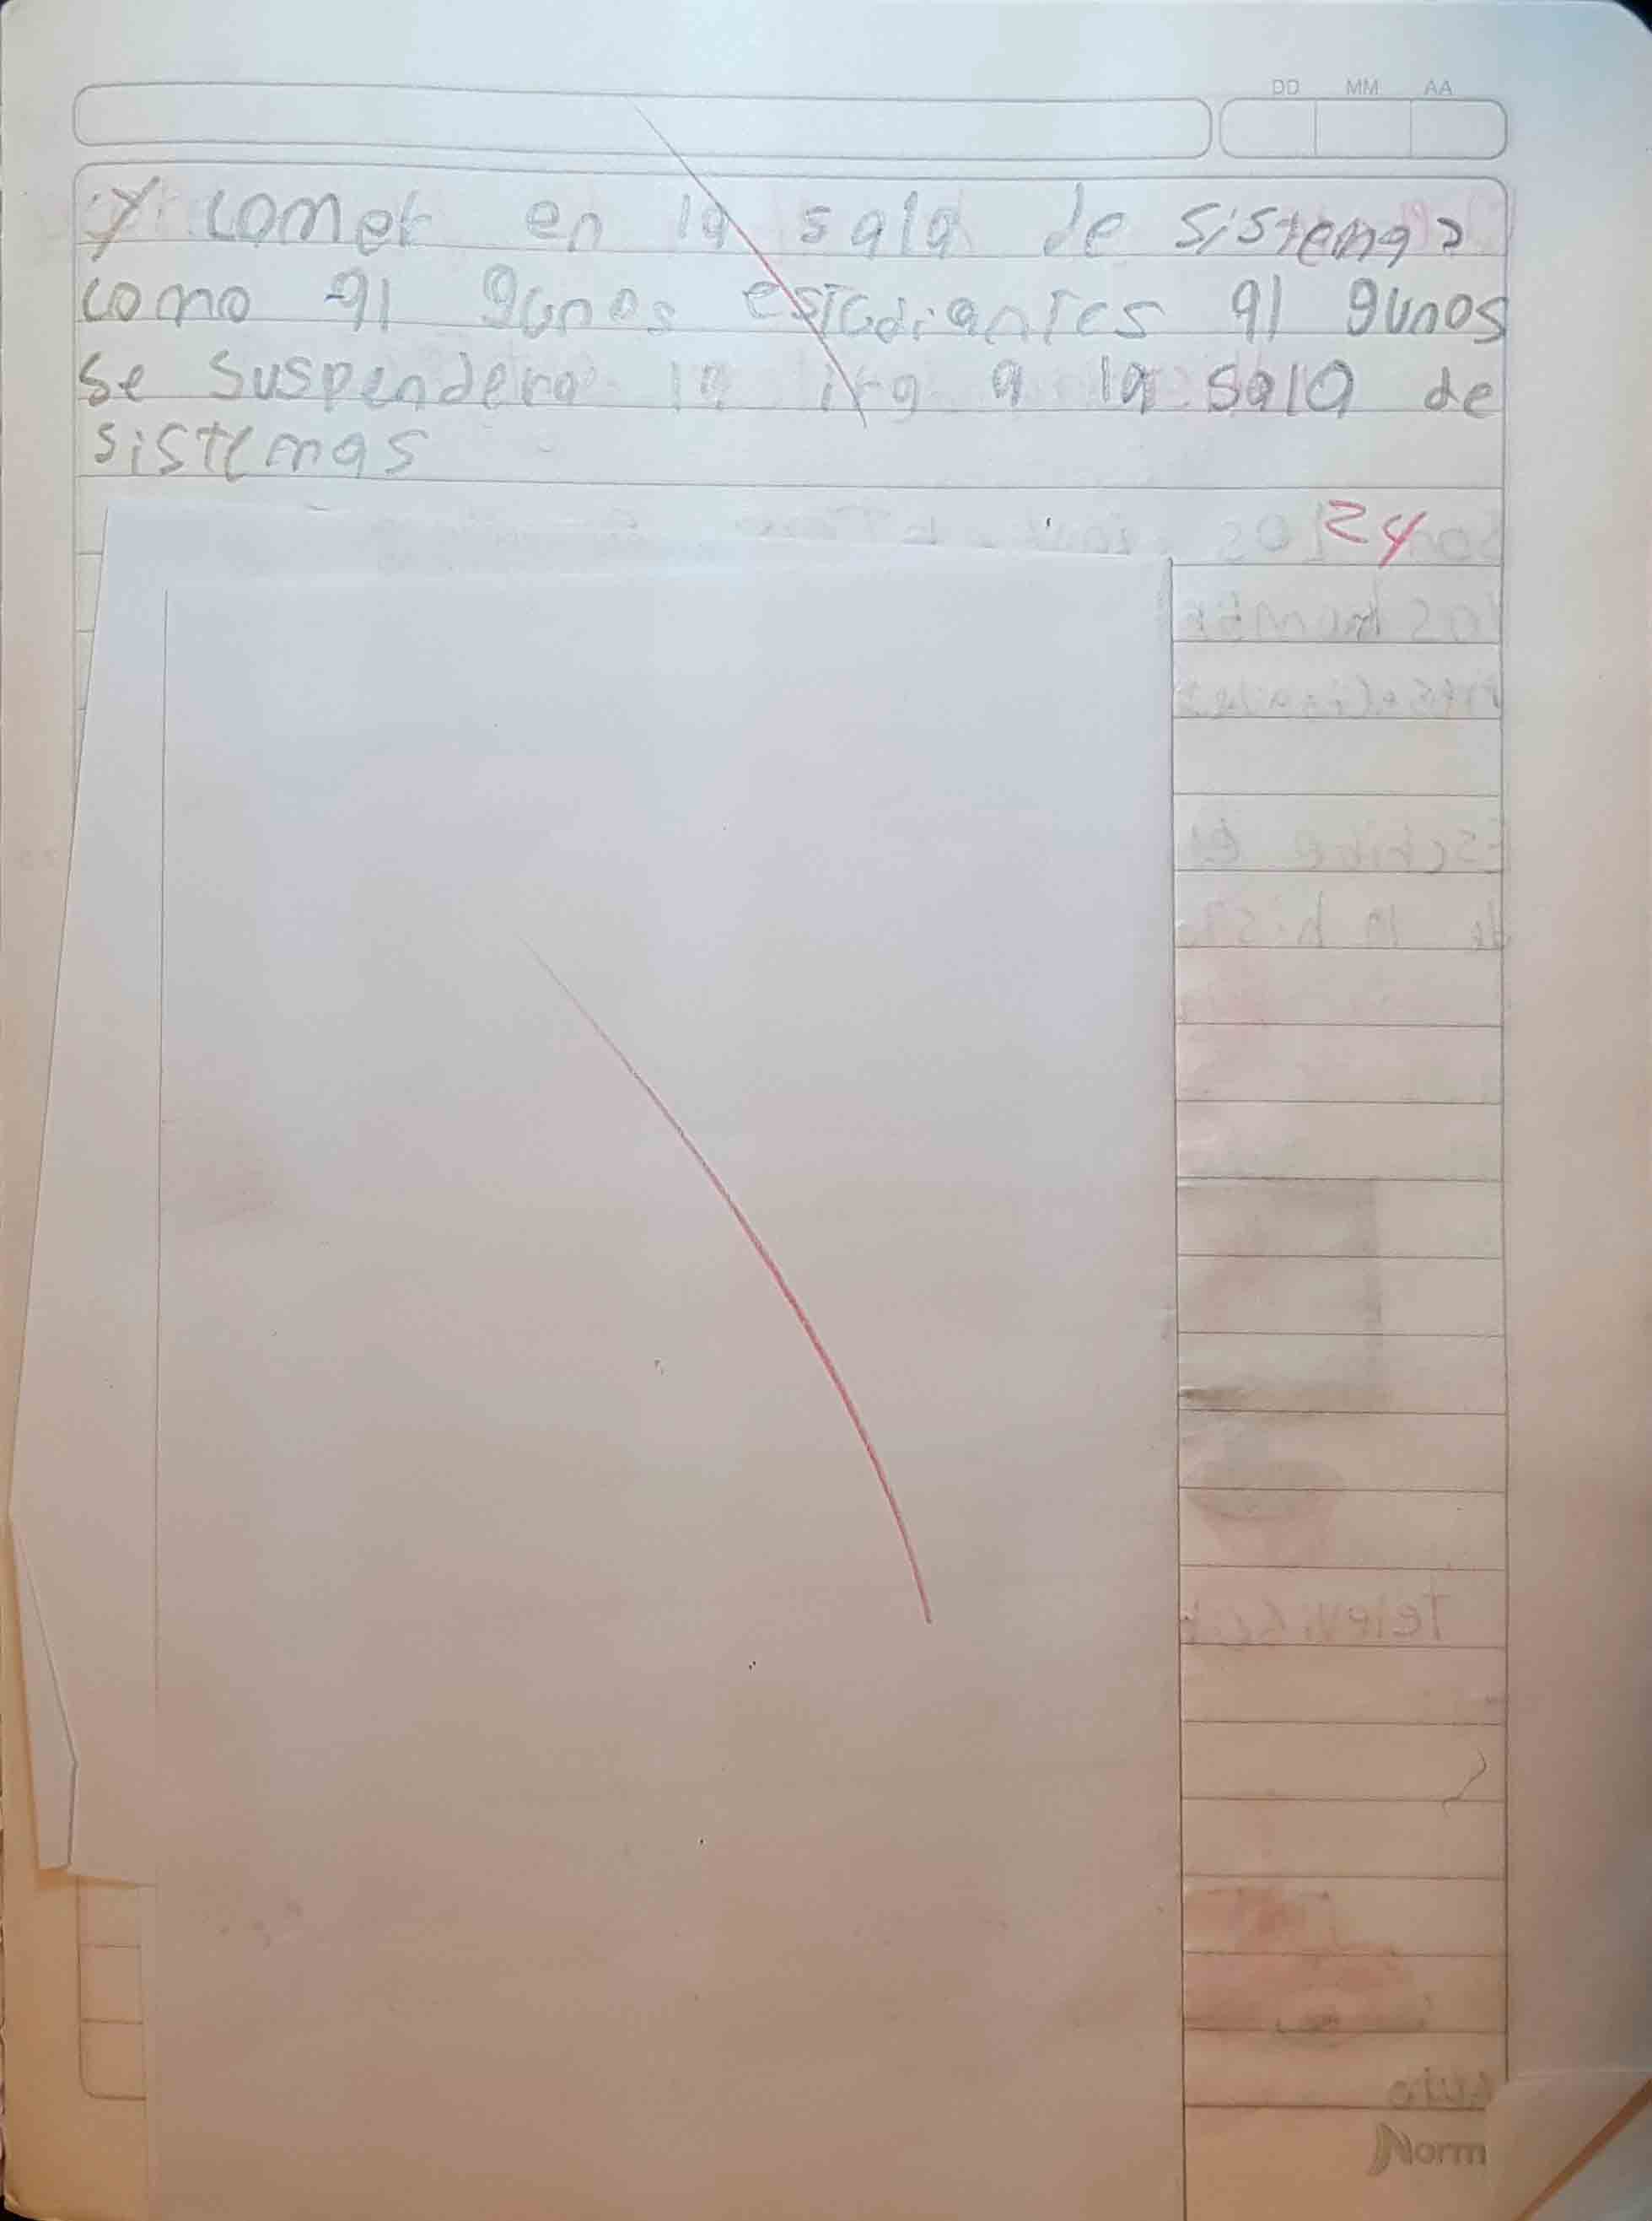 DD MM AA
Y comer en la sala de sistemas
como al gunos estudiantes al gunos
se suspendera la ira a la sala de
sistemas
24
Norm